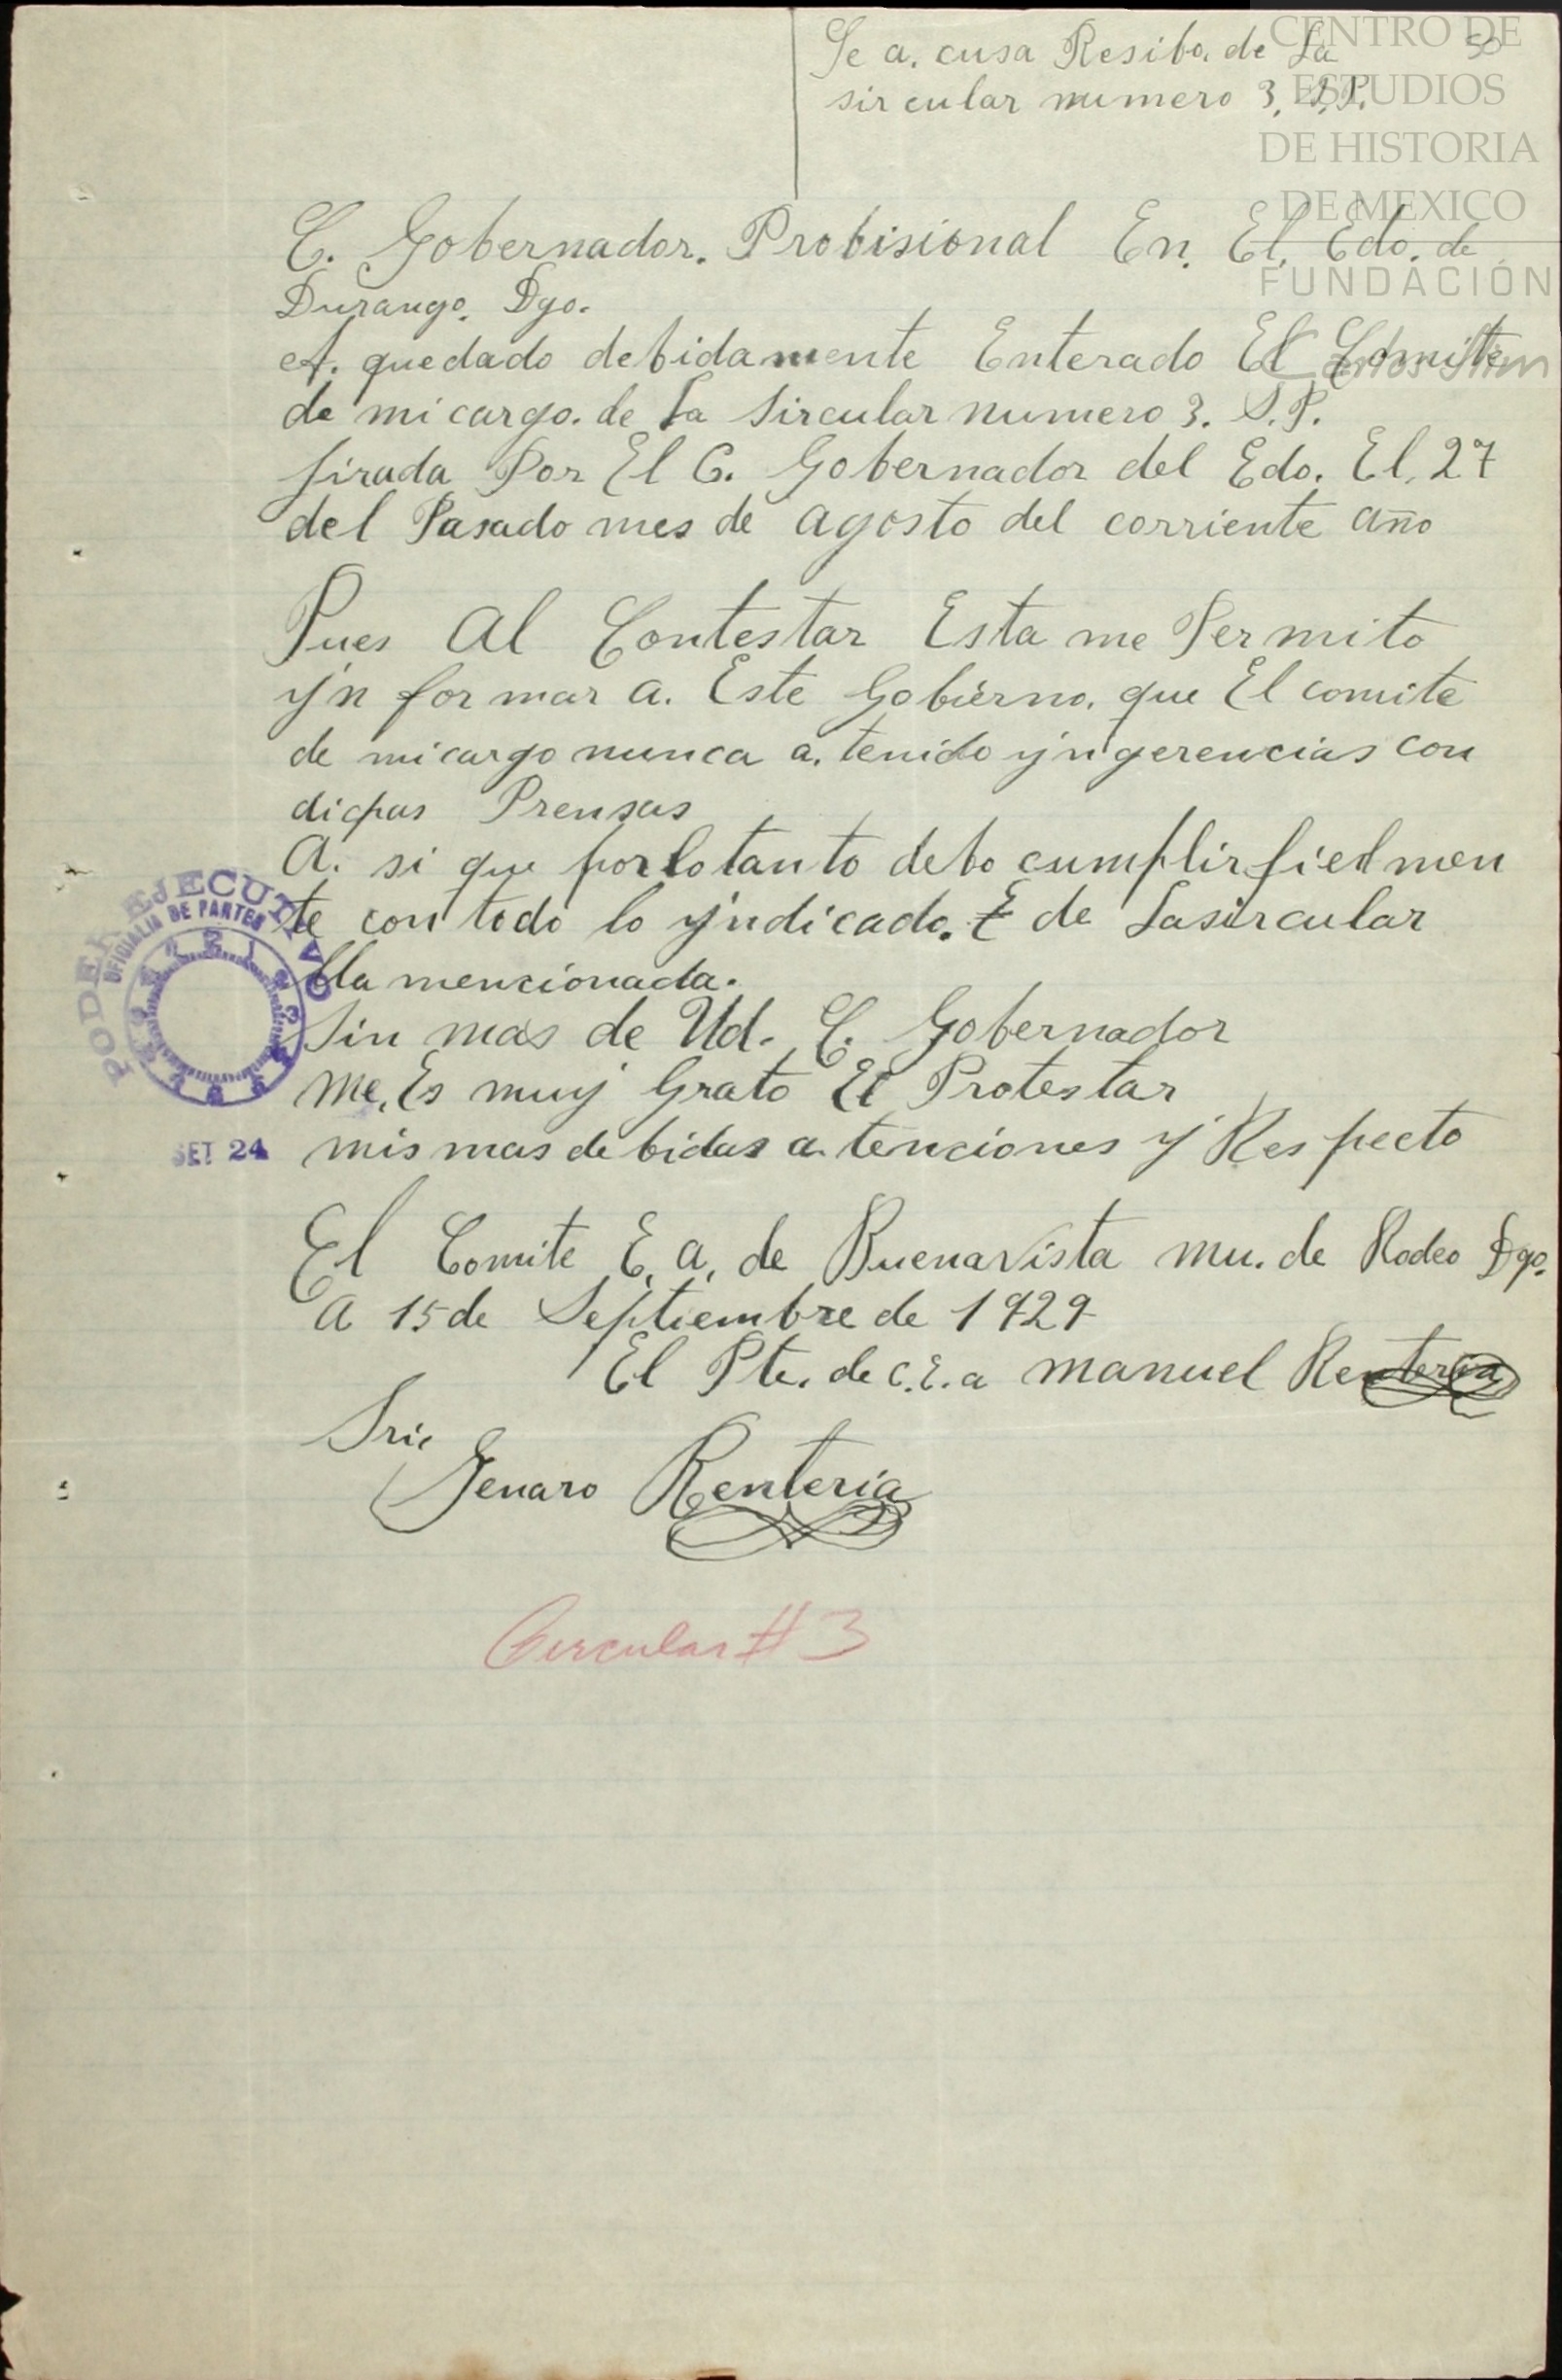 Se a. cusa Resibo. de La
50
sircular numero 3. S.P.
CENTRO DE
ESTUDIOS
DE HISTORIA
DE MEXICO
FUNDACIÓN
Carlos Slim
C. Gobernador. Probisional En. El. Edo. de
Durango. Dgo.
A. quedado debidamente Enterado El Comite
de mi cargo. de La Sircular numero 3. S.P.
Jirada Por El C. Gobernador del Edo. El. 27
del Pasado mes de agosto del corriente año
Pues Al Contestar Esta me Permito
yn for mar a. Este Gobierno. que El comite
de mi cargo nunca a. tenido yngerencias con
dichas Prensas
A. si que por lo tanto debo cumplir fielmen
te con todo lo yndicado. E de La sircular
lla mencionada.
Sin mas de Ud. C. Gobernador
me. Es muy Grato El Protestar
mis mas debidas a. tenciones y Respecto
PODER EJECUTIVO
OFICIALIA DE PARTES
SET 24
El Comite E. a. de Buenavista mu. de Rodeo Dgo.
A 15 de Septiembre de 1929
El Pte. de C.E.a manuel Renteria
Srio
Jenaro Renteria
Circular # 3